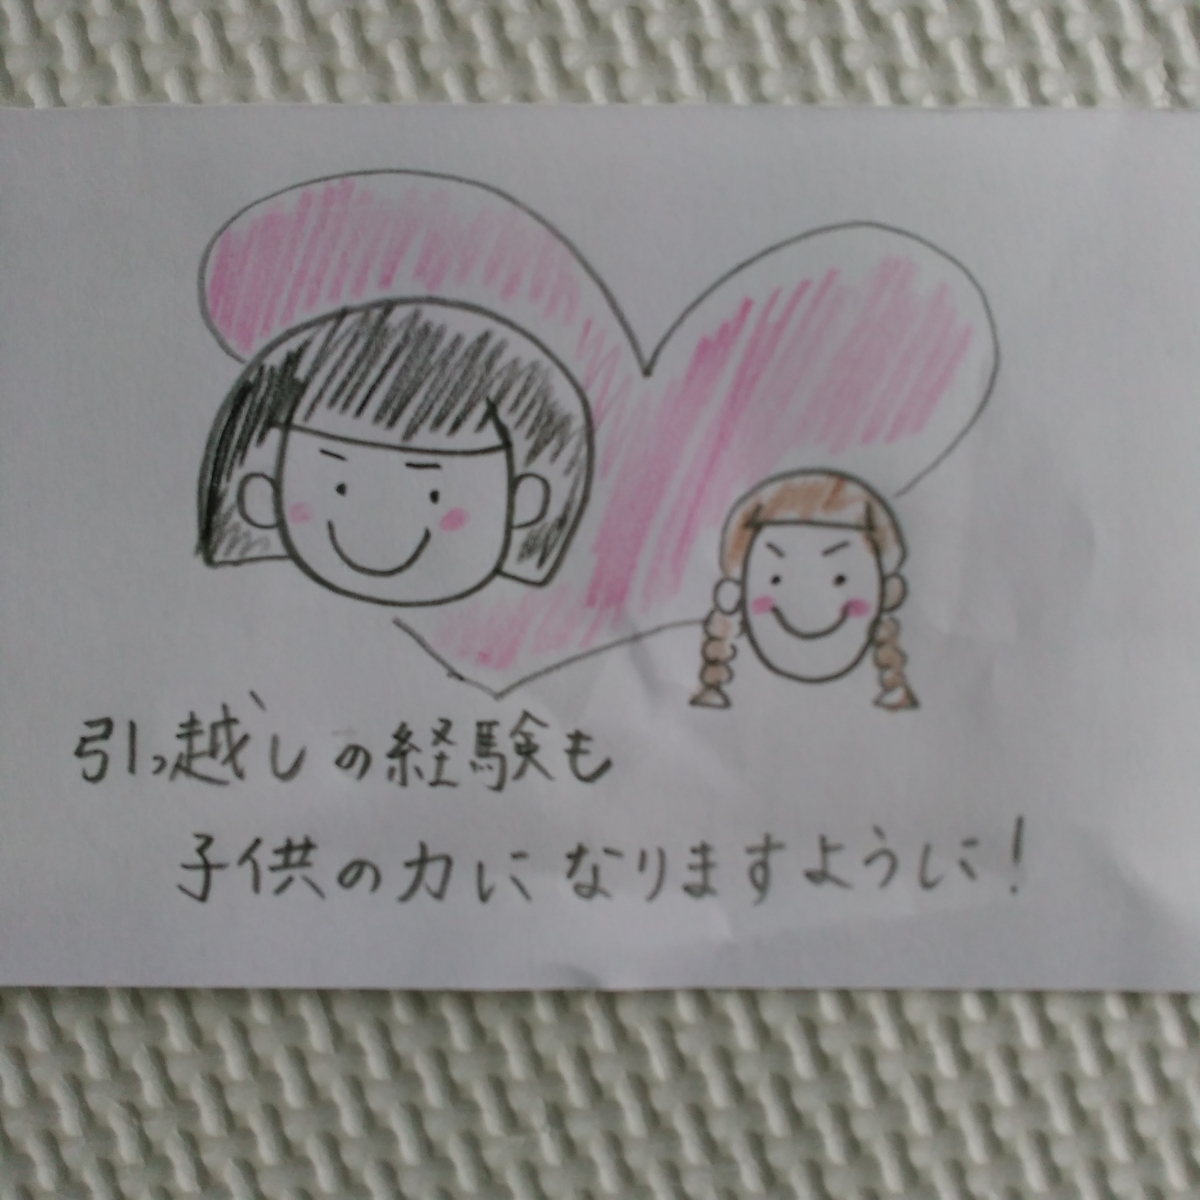 引っ越しの経験も
子供の力になりますように!